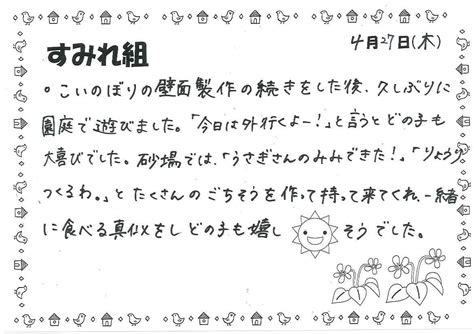 4月27日(木)
すみれ組
。こいのぼりの壁面製作の続きをした後、久しぶりに
園庭で遊びました。「今日は外行くよー!」と言うとどの子も
大喜びでした。砂場では、「うさぎさんのみみできた!」「りょうり
つくるわ。」とたくさんのごちそうを作って持って来てくれ、一緒
に食べる真似をしどの子も嬉しそうでした。